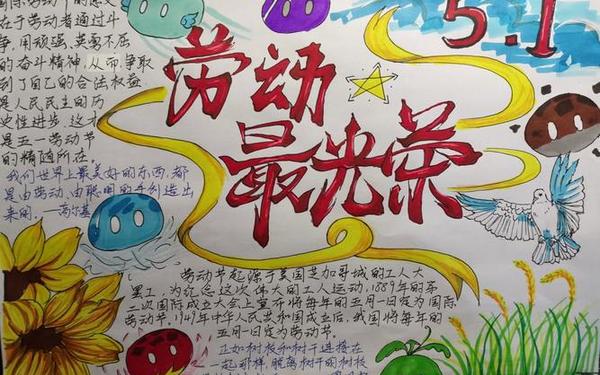 国际劳动节的意义
在于劳动者通过斗
争，用顽强、英勇不屈
的奋斗精神，从而争取
到了自己的合法权益
是人民民主的历
史性进步，这才
是五一劳动节
的精随所在。
我们世界上最美好的东西，都
是由劳动、由聪明的手创造出
来的。——高尔基
5.1
劳动
最光荣
劳动节起源于美国芝加哥城的工人大
罢工，为纪念这次伟大的工人运动，1889年的第
二次国际成立大会上宣布将每年的五月一日定为国际
劳动节。1949年中华人民共和国成立后，我国将每年的
五月一日定为劳动节。
正如树枝和树干连接在
一起那样，脱离树干的树枝